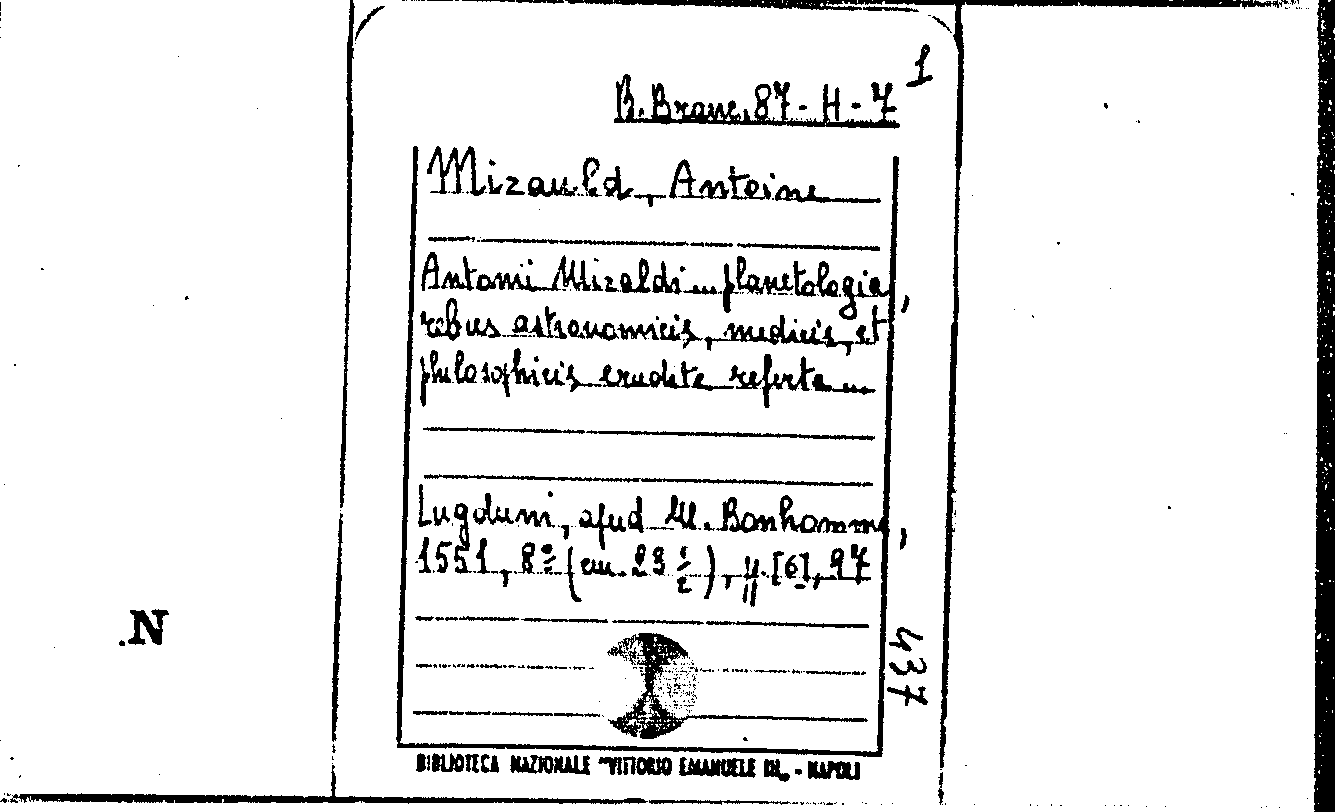 1
B. Branc. 87 - H - 7
Mizauld, Antoine
Antonii Mizaldi ... planetologia,
rebus astronomicis, medicis, et
philosophicis erudite referta ...
Lugduni, apud M. Bonhomme,
1551, 8º (cm. 23 ½), pp. [6], 97
437
.N
BIBLIOTECA NAZIONALE "VITTORIO EMANUELE III„ - NAPOLI